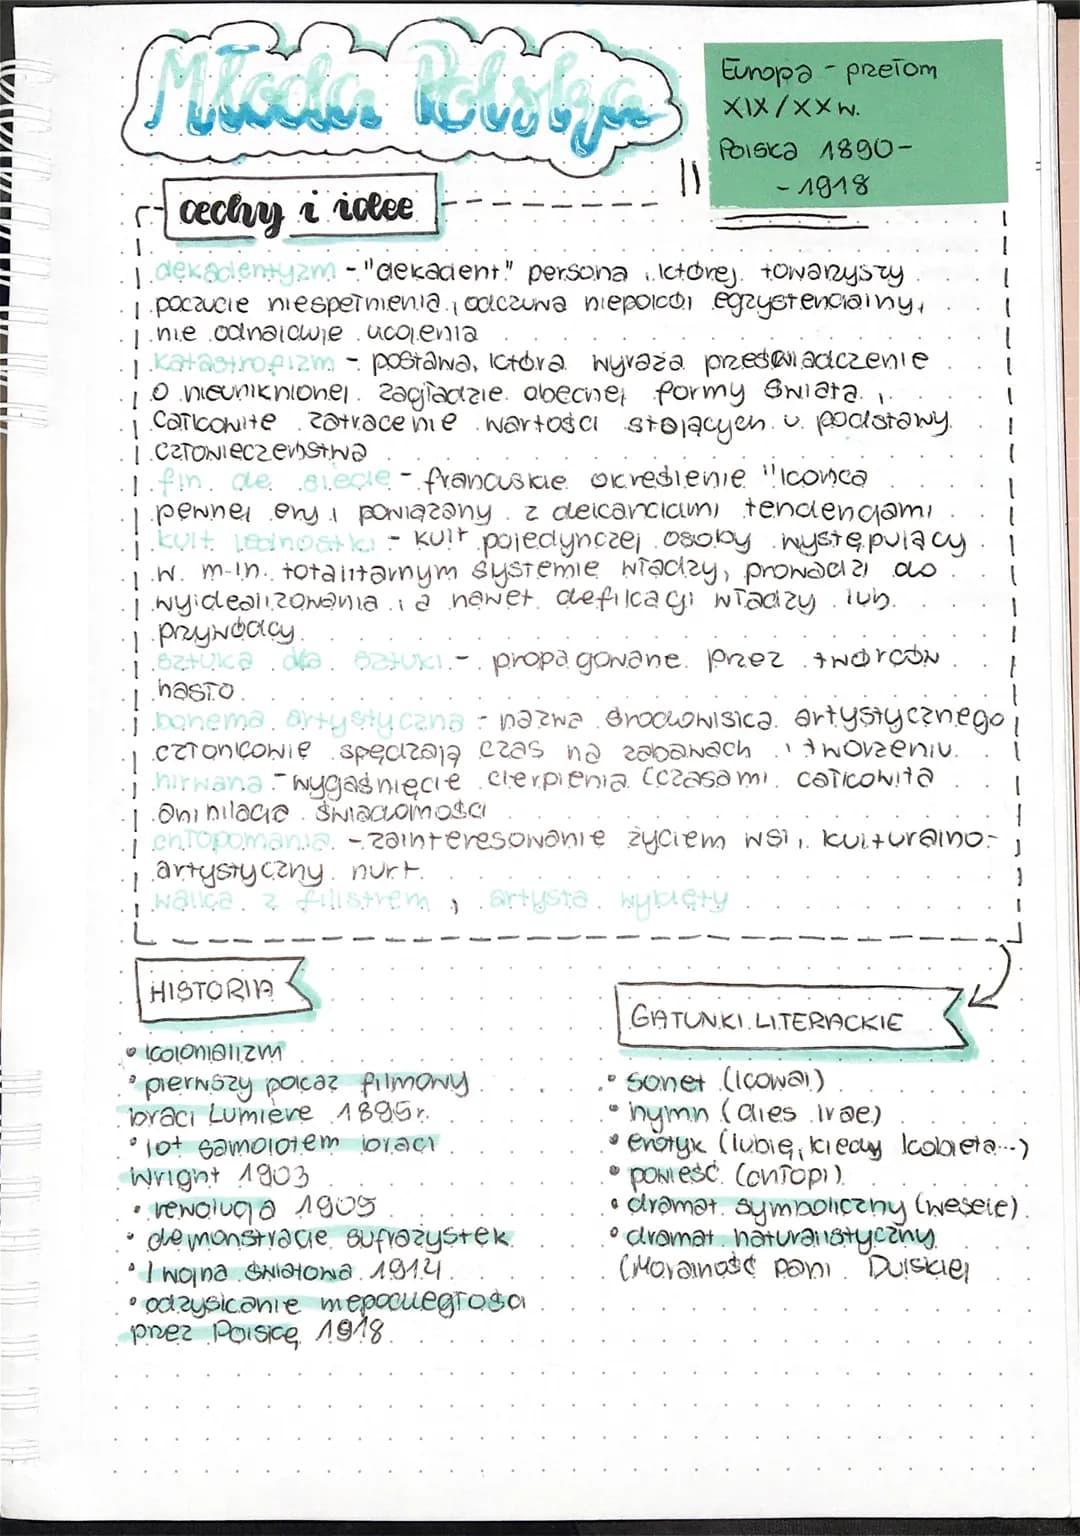 Młoda Polska
Europa - przełom
XIX/XX w.
Polska 1890-
- 1918
cechy i idee
dekadentyzm - "dekadent" persona, której towarzyszy
poczucie niespełnienia, odczuwa niepokój egzystencjalny,
nie odnajduje ucojenia
katastrofizm - postawa, która wyraża przeświadczenie
o nieuniknionej zagładzie obecnej formy świata,
całkowite zatracenie wartości stojących u podstawy
człowieczeństwa
fin de siecle - francuskie określenie "końca
pewnej ery, powiązany z tendencjami
kult jednostki - kult pojedynczej osoby występujący
w m-in. totalitarnym systemie władzy, prowadzi do
wyidealizowania, a nawet defikacji władzy lub
przywódcy
sztuka dla sztuki - propagowane przez twórców
hasło
bohema artystyczna - nazwa środowiska artystycznego,
członkowie spędzają czas na zabawach i tworzeniu
nirwana - wygaśnięcie cierpienia (czasami całkowita
anihilacja świadomości
chłopomania - zainteresowanie życiem wsi, kulturalno-
artystyczny nurt
walka z filistrem, artysta wyklęty
HISTORIA
• kolonializm
• pierwszy pokaz filmowy
braci Lumière 1895r.
• lot samolotem braci
Wright 1903
• rewolucja 1905
• demonstracje sufrażystek
• I wojna światowa 1914
• odzyskanie niepodległości
przez Polskę 1918
GATUNKI LITERACKIE
• sonet (Kowal)
• hymn (dies irae)
• erotyk (lubię, kiedy kobieta...)
• powieść (chłopi)
• dramat symboliczny (wesele)
• dramat naturalistyczny
(Moralność pani Dulskiej